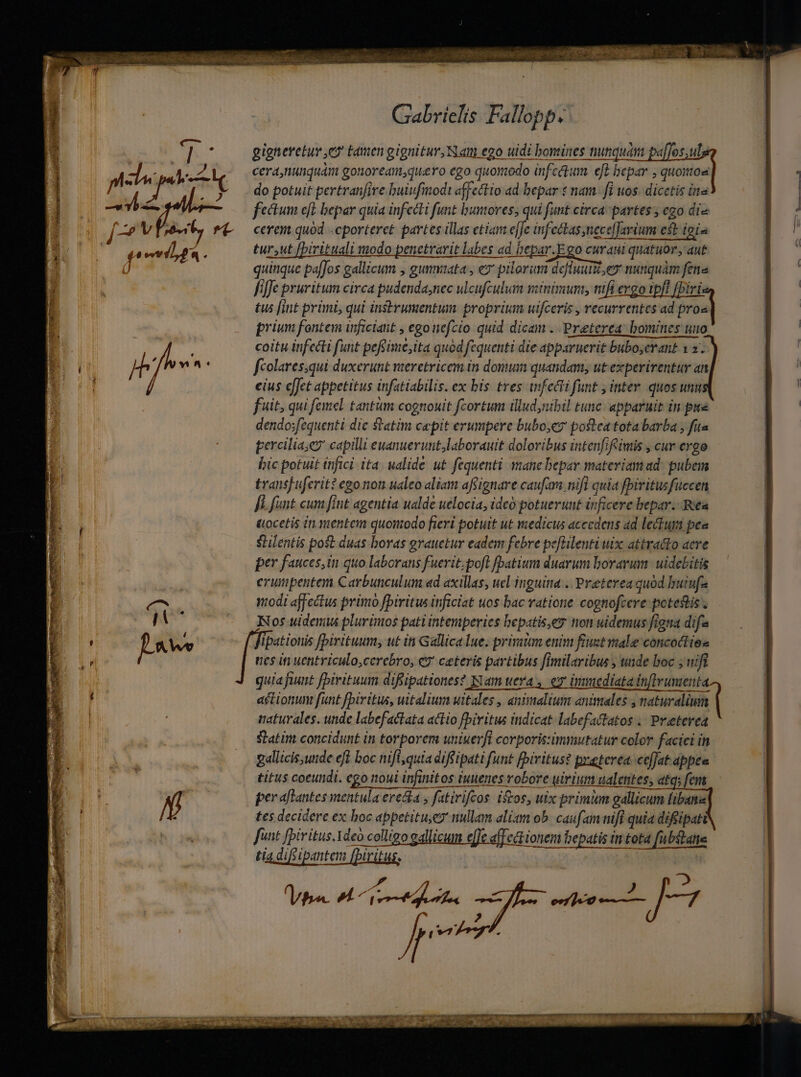 Gabrielis Fallopp.
gigneretur,et tamen gignitur,Nam ego uidi homines nunquàm passos,ulsa
cera,nunquàm gonoream,quero ego quomodo infectum est hepar, quomo=
do potuit pertransire huiusmodi affectio ad hepar? nam si uos dicetis in=
fectum est hepar quia infecti sunt humores, qui sunt circa partes, ego di=
cerem quòd oporteret partes illas etiam esse infectas,necessarium est igi=
tur,ut spirituali modo penetrarit labes ad hepar.Ego curaui quatuor, aut
quinque passos gallicum, gummata, et pilorum defluuiū,et nunquàm sen=
sisse pruritum circa pudenda,nec ulcusculum minimum, nisi ergo ipsi spiri=
tus sint primi, qui instrumentum proprium uisceris, recurrentes ad pro=
prium fontem inficiant, ego nescio quid dicam. Præterea homines uno
coitu infecti sunt pessime,ita quòd sequenti die apparuerit bubo,erant 12.
scolares,qui duxerunt meretricem in domum quandam, ut experirentur an
eius esset appetitus insatiabilis. ex his tres infecti sunt, inter quos unus
fuit, qui semel tantùm cognouit scortum illud,nihil tunc apparuit in pu=
dendo;sequenti die statim cœpit erumpere bubo,et postea tota barba, su=
percilia,et capilli euanuerunt,laborauit doloribus intensissimis, cur ergo
hic potuit infici ita ualide ut sequenti mane hepar materiam ad pubem
transfuserit? ego non ualeo aliam assignare causam nisi quia spiritus succen
si sunt cum sint agentia ualde uelocia, ideò potuerunt inficere hepar. Re=
uocetis in mentem quomodo fieri potuit ut medicus accedens ad lectum pe=
stilentis post duas horas grauetur eadem febre pestilenti uix attracto aere
per fauces,in quo laborans fuerit,post spatium duarum horarum uidebitis
erumpentem Carbunculum ad axillas, uel inguina. Præterea quòd huius=
modi affectus primò spiritus inficiat uos hac ratione cognoscere potestis.
Nos uidemus plurimos pati intemperies hepatis,et non uidemus signa dis=
sipationis spirituum, ut in Gallica lue. primùm enim fiunt male concoctio=
nes in uentriculo,cerebro, et cæteris partibus similaribus, unde hoc, nisi
quia fiunt spirituum dissipationes? Nam uera, et immediata instrumenta
actionum sunt spiritus, uitalium uitales, animalium animales, naturalium
naturales. unde labefactata actio spiritus indicat labefactatos. Præterea
statim concidunt in torporem uniuersi corporis:immutatur color faciei in
gallicis,unde est hoc nisi,quia dissipati sunt spiritus? præterea cessat appe=
titus coeundi. ego noui infinitos iuuenes robore uirium ualentes, atq; sem
per astantes mentula erecta, fatirifcos istos, uix primùm gallicum liban=
tes decidere ex hoc appetitu,et nullam aliam ob causam nisi quia dissipati
sunt spiritus.Ideò colligo gallicum esse affectionem hepatis in tota substan=
tia dissipantem spiritus.